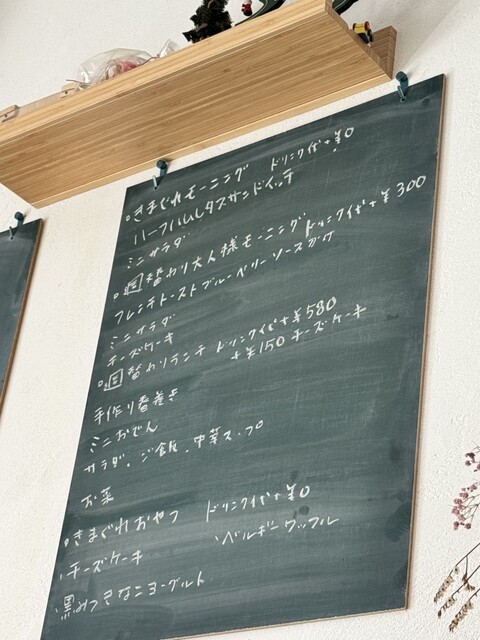 °きまぐれモーニング ドリンク代+¥0
ハーフハムレタスサンドイッチ
ミニサラダ
°週替わり大人様モーニング ドリンク代+¥300
フレンチトーストブルーベリーソースがけ
ミニサラダ
チーズケーキ
°週替わりランチ ドリンク代+¥580
+¥150チーズケーキ
手作り春巻き
ミニおでん
サラダ・ご飯・中華スープ
お菜
・きまぐれおやつ ドリンク代+¥0
・チーズケーキ ・ベルギーワッフル
・黒みつきなこヨーグルト